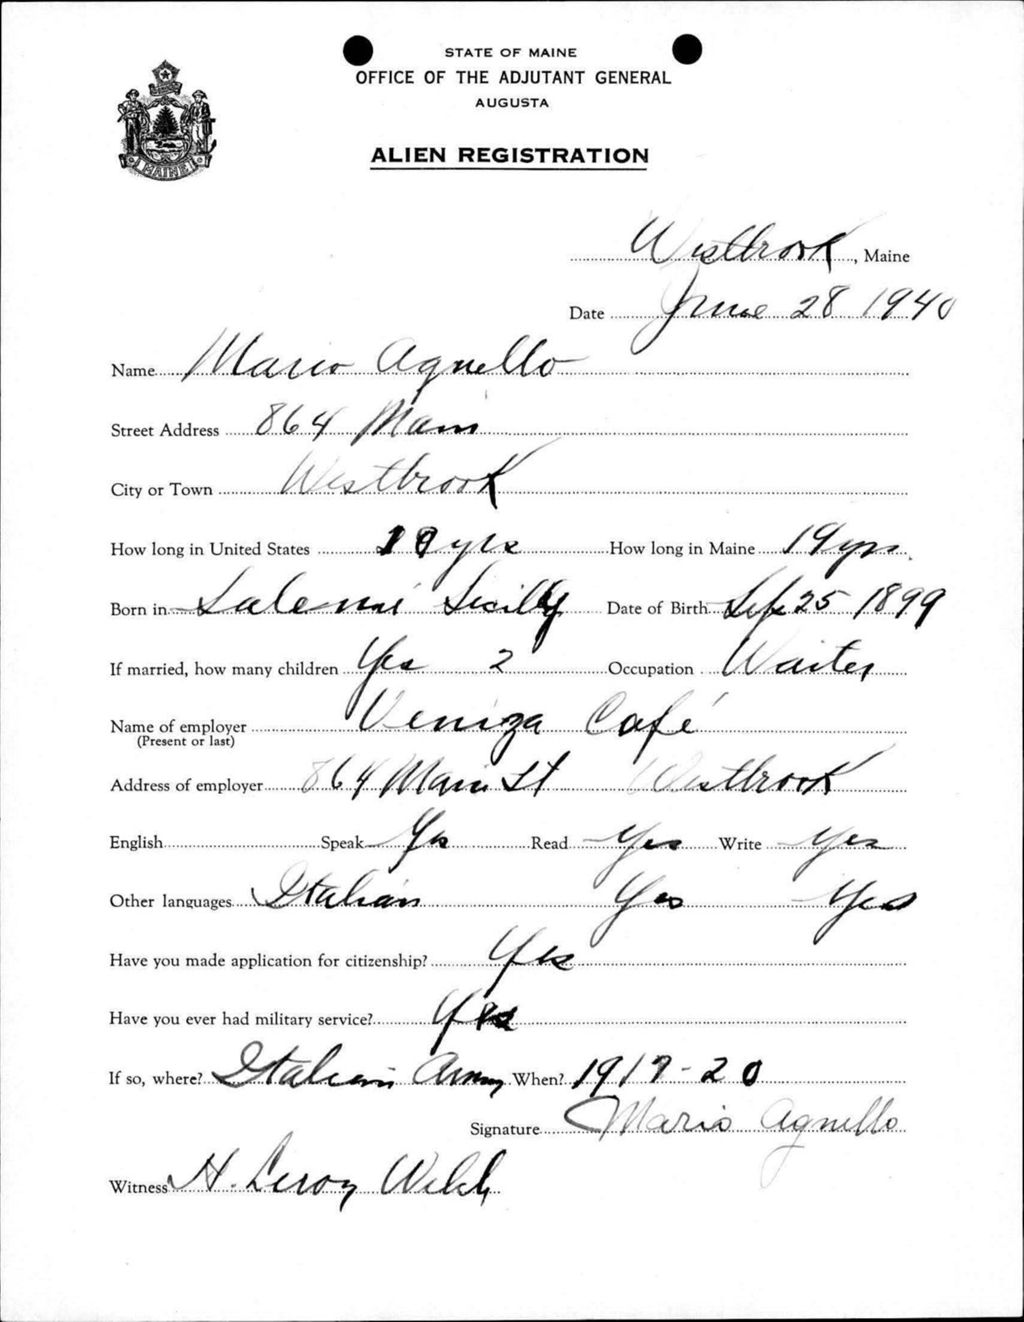 STATE OF MAINE
OFFICE OF THE ADJUTANT GENERAL
AUGUSTA
ALIEN REGISTRATION
MAINE
Westbrook, Maine
Date June 28 1940
Name Mario Agnello
Street Address 864 Main
City or Town Westbrook
How long in United States 19 yrs How long in Maine 19 yrs.
Born in Salemi Sicilly Date of Birth Sep 25 1899
If married, how many children Yes 2 Occupation Waiter
Name of employer Veniza Café
(Present or last)
Address of employer 864 Main St Westbrook
English Speak Yes Read Yes Write Yes
Other languages Italian Yes Yes
Have you made application for citizenship? Yes
Have you ever had military service? Yes
If so, where? Italian Army When? 1917-20
Signature Mario Agnello
Witness H. Leroy Welch